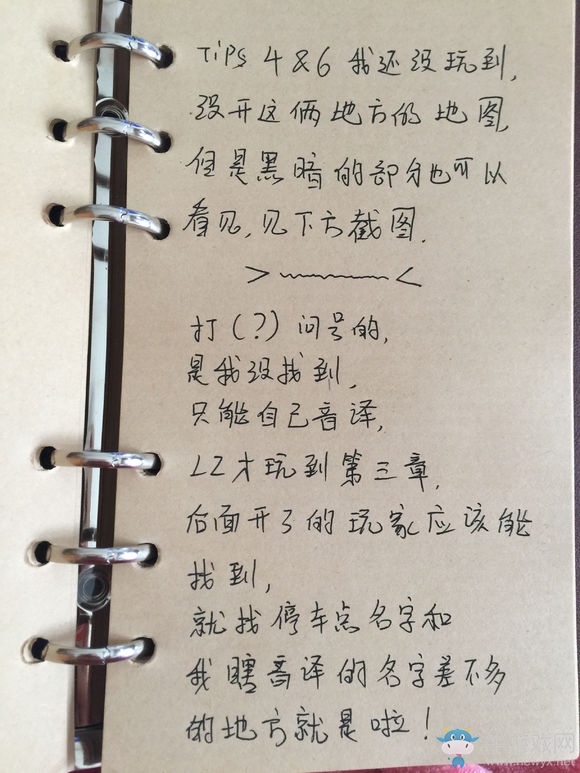 Tips 4&6 我还没玩到,
没开这俩地方的地图,
但是黑暗的部分也可以
看见,见下方截图.
>﹏﹏﹏﹏<
打(?)问号的,
是我没找到,
只能自己音译,
LZ才玩到第三章,
后面开了的玩家应该能
找到,
就找停车点名字和
我瞎音译的名字差不多
的地方就是啦!
游戏网
www.newyx.net